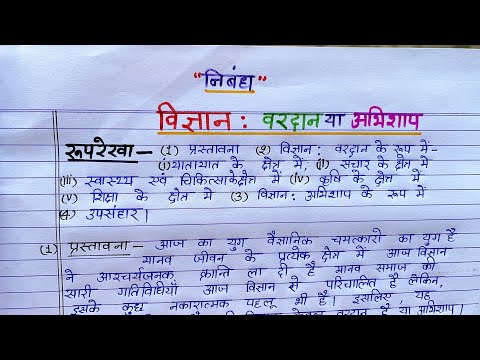 "निबंध"
विज्ञान : वरदान या अभिशाप
रूपरेखा — (1) प्रस्तावना (2) विज्ञान: वरदान के रूप में-
(i) यातायात के क्षेत्र में, (ii) संचार के क्षेत्र में
(iii) स्वास्थ्य एवं चिकित्साकेक्षेत्र में (iv) कृषि के क्षेत्र में
(v) शिक्षा के क्षेत्र मे (3) विज्ञान: अभिशाप के रूप में
(4) उपसंहार।
(1) प्रस्तावना - आज का युग वैज्ञानिक चमत्कारो का युग है
मानव जीवन के प्रत्येक क्षेत्र में आज विज्ञान
ने आश्चर्यजनक क्रान्ति ला दी है मानव समाज की
सारी गतिविधियाँ आज विज्ञान से परिचालित है लेकिन,
इसके कुछ नकारात्मक पहलू भी है। इसलिए, यह
वरदान है या अभिशाप।